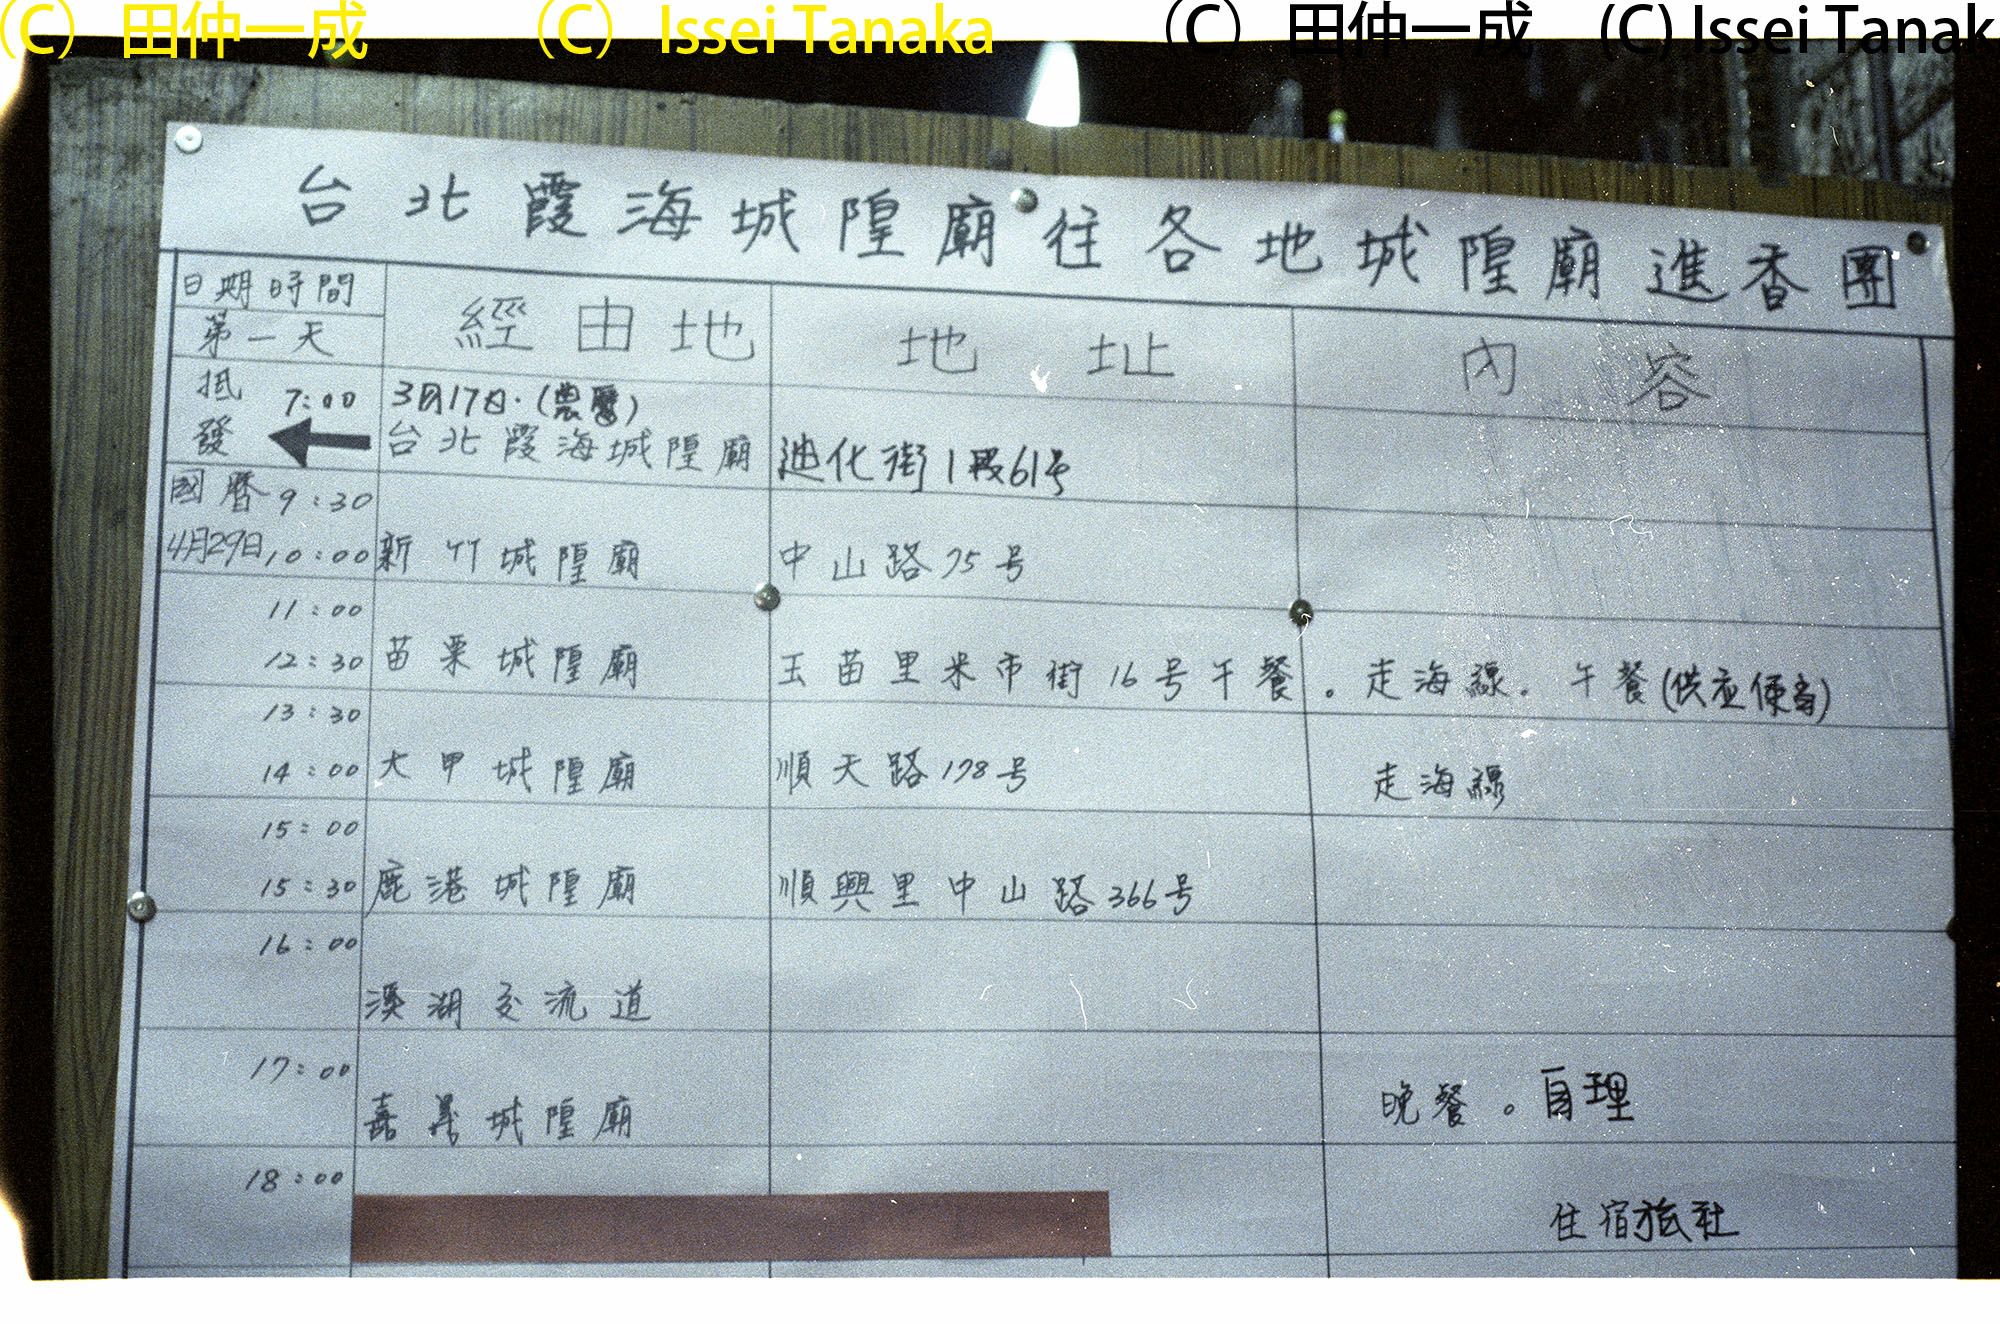 (C) 田仲一成 (C) Issei Tanaka (C) 田仲一成 (C) Issei Tanak
台北霞海城隍廟往各地城隍廟進香團
日期時間 經由地 地址 內容
第一天
抵 7:00 3月17日.(農曆)
發 台北霞海城隍廟 迪化街1段61号
國曆 9:30
4月29日 10:00 新竹城隍廟 中山路75号
11:00
12:30 苗栗城隍廟 玉苗里米市街16号午餐。走海線.午餐(供应便當)
13:30
14:00 大甲城隍廟 順天路178号 走海線
15:00
15:30 鹿港城隍廟 順興里中山路366号
16:00
溪湖交流道
17:00
嘉義城隍廟 晚餐。自理
18:00
住宿旅社